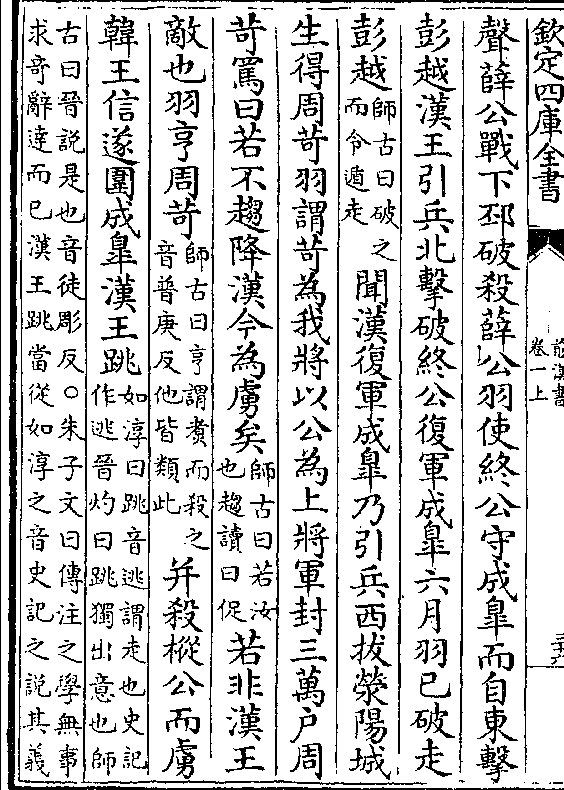 欽定四庫全書
前漢書
卷一上
聲薛公戰下邳破殺薛公羽使終公守成臯而自東擊
彭越漢王引兵北擊破終公復軍成臯六月羽已破走
彭越師古曰破之而令遁走聞漢復軍成臯乃引兵西拔滎陽城
生得周苛羽謂苛為我將以公為上將軍封三萬户周
苛罵曰若不趨降漢今為虜矣師古曰若汝也趨讀曰促若非漢王
敵也羽亨周苛師古曰亨謂煑而殺之音普庚反他皆類此并殺樅公而虜
韓王信遂圍成臯漢王跳如淳曰跳音逃謂走也史記作逃晉灼曰跳獨出意也師
古曰晉説是也音徒彫反○朱子文曰傳注之學無事求奇辭達而已漢王跳當從如淳之音史記之説其義